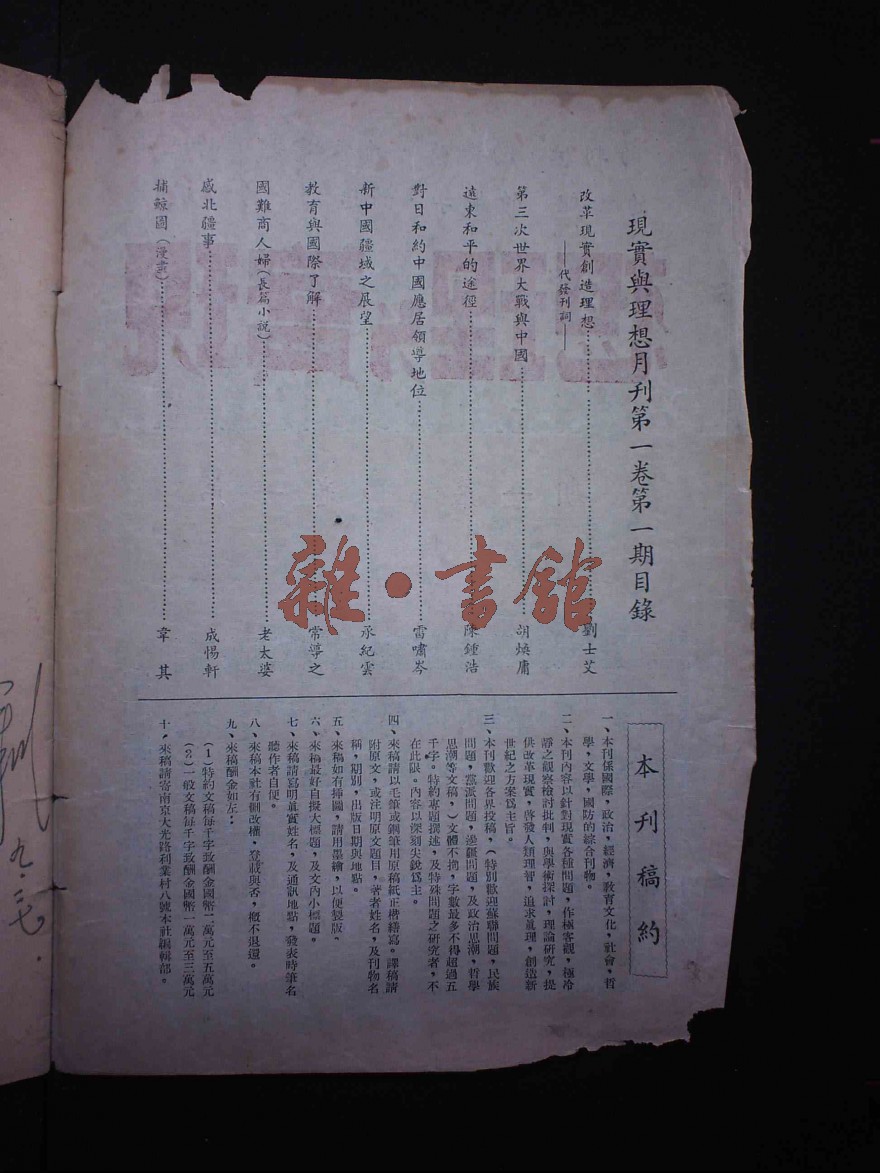 現實與理想月刊第一卷第一期目錄
改革現實創造理想……劉士艾
——代發刊詞——
第三次世界大戰與中國……胡煥庸
遠東和平的途徑……陳鍾浩
對日和約中國應居領導地位……雷嘯岑
新中國疆域之展望……承紀雲
教育與國際了解……常導之
國難商人婦(長篇小說)……老太婆
感北疆事……成惕軒
捕鯨圖(漫畫)……韋其
本刊稿約
一、本刊係國際,政治,經濟,教育文化,社會,哲
學,文學,國防的綜合刊物。
二、本刊內容以針對現實各種問題,作極客觀,極冷
靜之觀察檢討批制,與學術探討,理論研究,提
供改革現實,啓發人類理智,追求眞理,創造新
世紀之方案爲主旨。
三、本刊歡迎各界投稿,(特別歡迎蘇聯問題,民族
問題,黨派問題,邊疆問題,及政治思潮,哲學
思潮等文稿,)文體不拘,字數最多不得超過五
千字。特約專題撰述,及特殊問題之研究者,不
在此限。內容以深刻尖銳爲主。
四、來稿請以毛筆或鋼筆用原稿紙正楷繕寫。譯稿請
附原文,或注明原文題目,著者姓名,及刊物名
稱,期別,出版日期與地點。
五、來稿如有插圖,請用墨繪,以便製版。
六、來稿最好自擬大標題,及文內小標題。
七、來稿請寫明眞實姓名,及通訊地點,發表時筆名
聽作者自便。
八、來稿本社有刪改權,登載與否,概不退還。
九、來稿酬金如左:
(1)特約文稿每千字致酬金國幣二萬元至五萬元
(2)一般文稿每千字致酬金國幣一萬元至三萬元
十,來稿請寄南京大光路利業村八號本社編輯部。
雜·書館
九.三七.